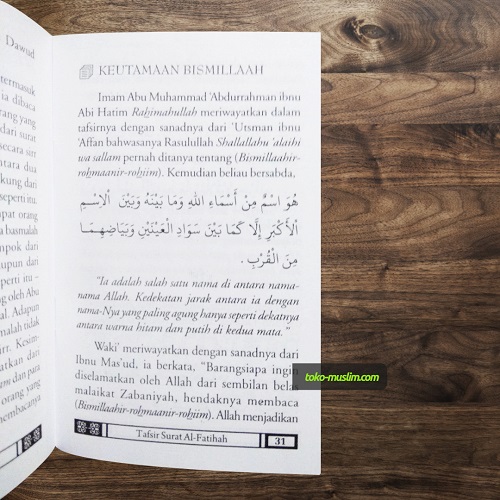 Dawud
termasuk
ia dibaca
rang yang
dari surat
secara sirr
antara dua
kung dari
seperti itu.
pat orang
basmalah
mpok dari
aupun dari
perti itu –
oleh Abu
Adapun
malah tidak
rr. Kesim-
dan para
orang yang
membacanya
KEUTAMAAN BISMILLAAH
Imam Abu Muhammad 'Abdurrahman ibnu
Abi Hatim Rahimahullah meriwayatkan dalam
tafsirnya dengan sanadnya dari 'Utsman ibnu
'Affan bahwasanya Rasulullah Shallallahu 'alaihi
wa sallam pernah ditanya tentang (Bismillaahir-
rohmaanir-rohiim). Kemudian beliau bersabda,
هُوَ اسْمٌ مِنْ أَسْمَاءِ اللهِ وَمَا بَيْنَهُ وَبَيْنَ الْاِسْمِ
الْأَكْبَرِ إِلَّا كَمَا بَيْنَ سَوَادِ الْعَيْنَيْنِ وَبَيَاضِهِمَا
مِنَ الْقُرْبِ .
"Ia adalah salah satu nama di antara nama-
nama Allah. Kedekatan jarak antara ia dengan
nama-Nya yang paling agung hanya seperti dekatnya
antara warna hitam dan putih di kedua mata."
Waki' meriwayatkan dengan sanadnya dari
Ibnu Mas'ud, ia berkata, "Barangsiapa ingin
diselamatkan oleh Allah dari sembilan belas
malaikat Zabaniyah, hendaknya membaca
(Bismillaahir-rohmaanir-rohiim). Allah menjadikan
Tafsir Surat Al-Fatihah 31
toko-muslim.com